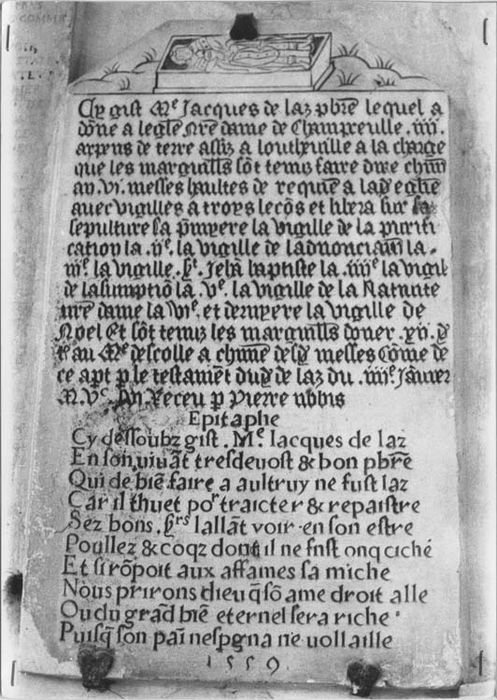 Cy gist Me Jacques de laz pbrē lequel a
dōne a leglē nrē dame de Champreville . iiii.
arpens de terre assiz a loutheuille a la charge
que les marguillrs sōt tenus faire dire chūn
an . vi. messes haultes de requiē a lad eglise
auec vigilles a troys lecōs et libera sur sa
sepulture la pmyere la vigille de la purifi
cation la . iie. la vigille de ladnonciaōn la .
iiie. la vigille . st. Jehā baptiste la . iiiie la vigil
de lasumptiō la . ve. la vigille de la Natiuite
nrē dame la vie. et dernyere la vigille de
Noel Et sōt tenuz les marguillrs doner . xii. d
au Me descolle a chūne desd messes Cōme de
ce apt p le testamēt dud de laz du . iiiie. Januer
M. Vc. Receu p Pierre
Epitaphe
Cy dessoubz gist . Me. Iacques de laz
En son viuāt tresdeuost & bon pbrē
Qui de biē faire a aultruy ne fust laz
Car il thuet por traicter & repaistre
Sez bons . srs lallāt voir en son estre
Poullez & coqz dont il ne fust onq ciché
Et si rōpoit aux affames sa miche
Nous prirons dieu q sō ame droit alle
Ou du grād biē eternel sera riche
Puisq son paī nespgna ne vollaille
1559.